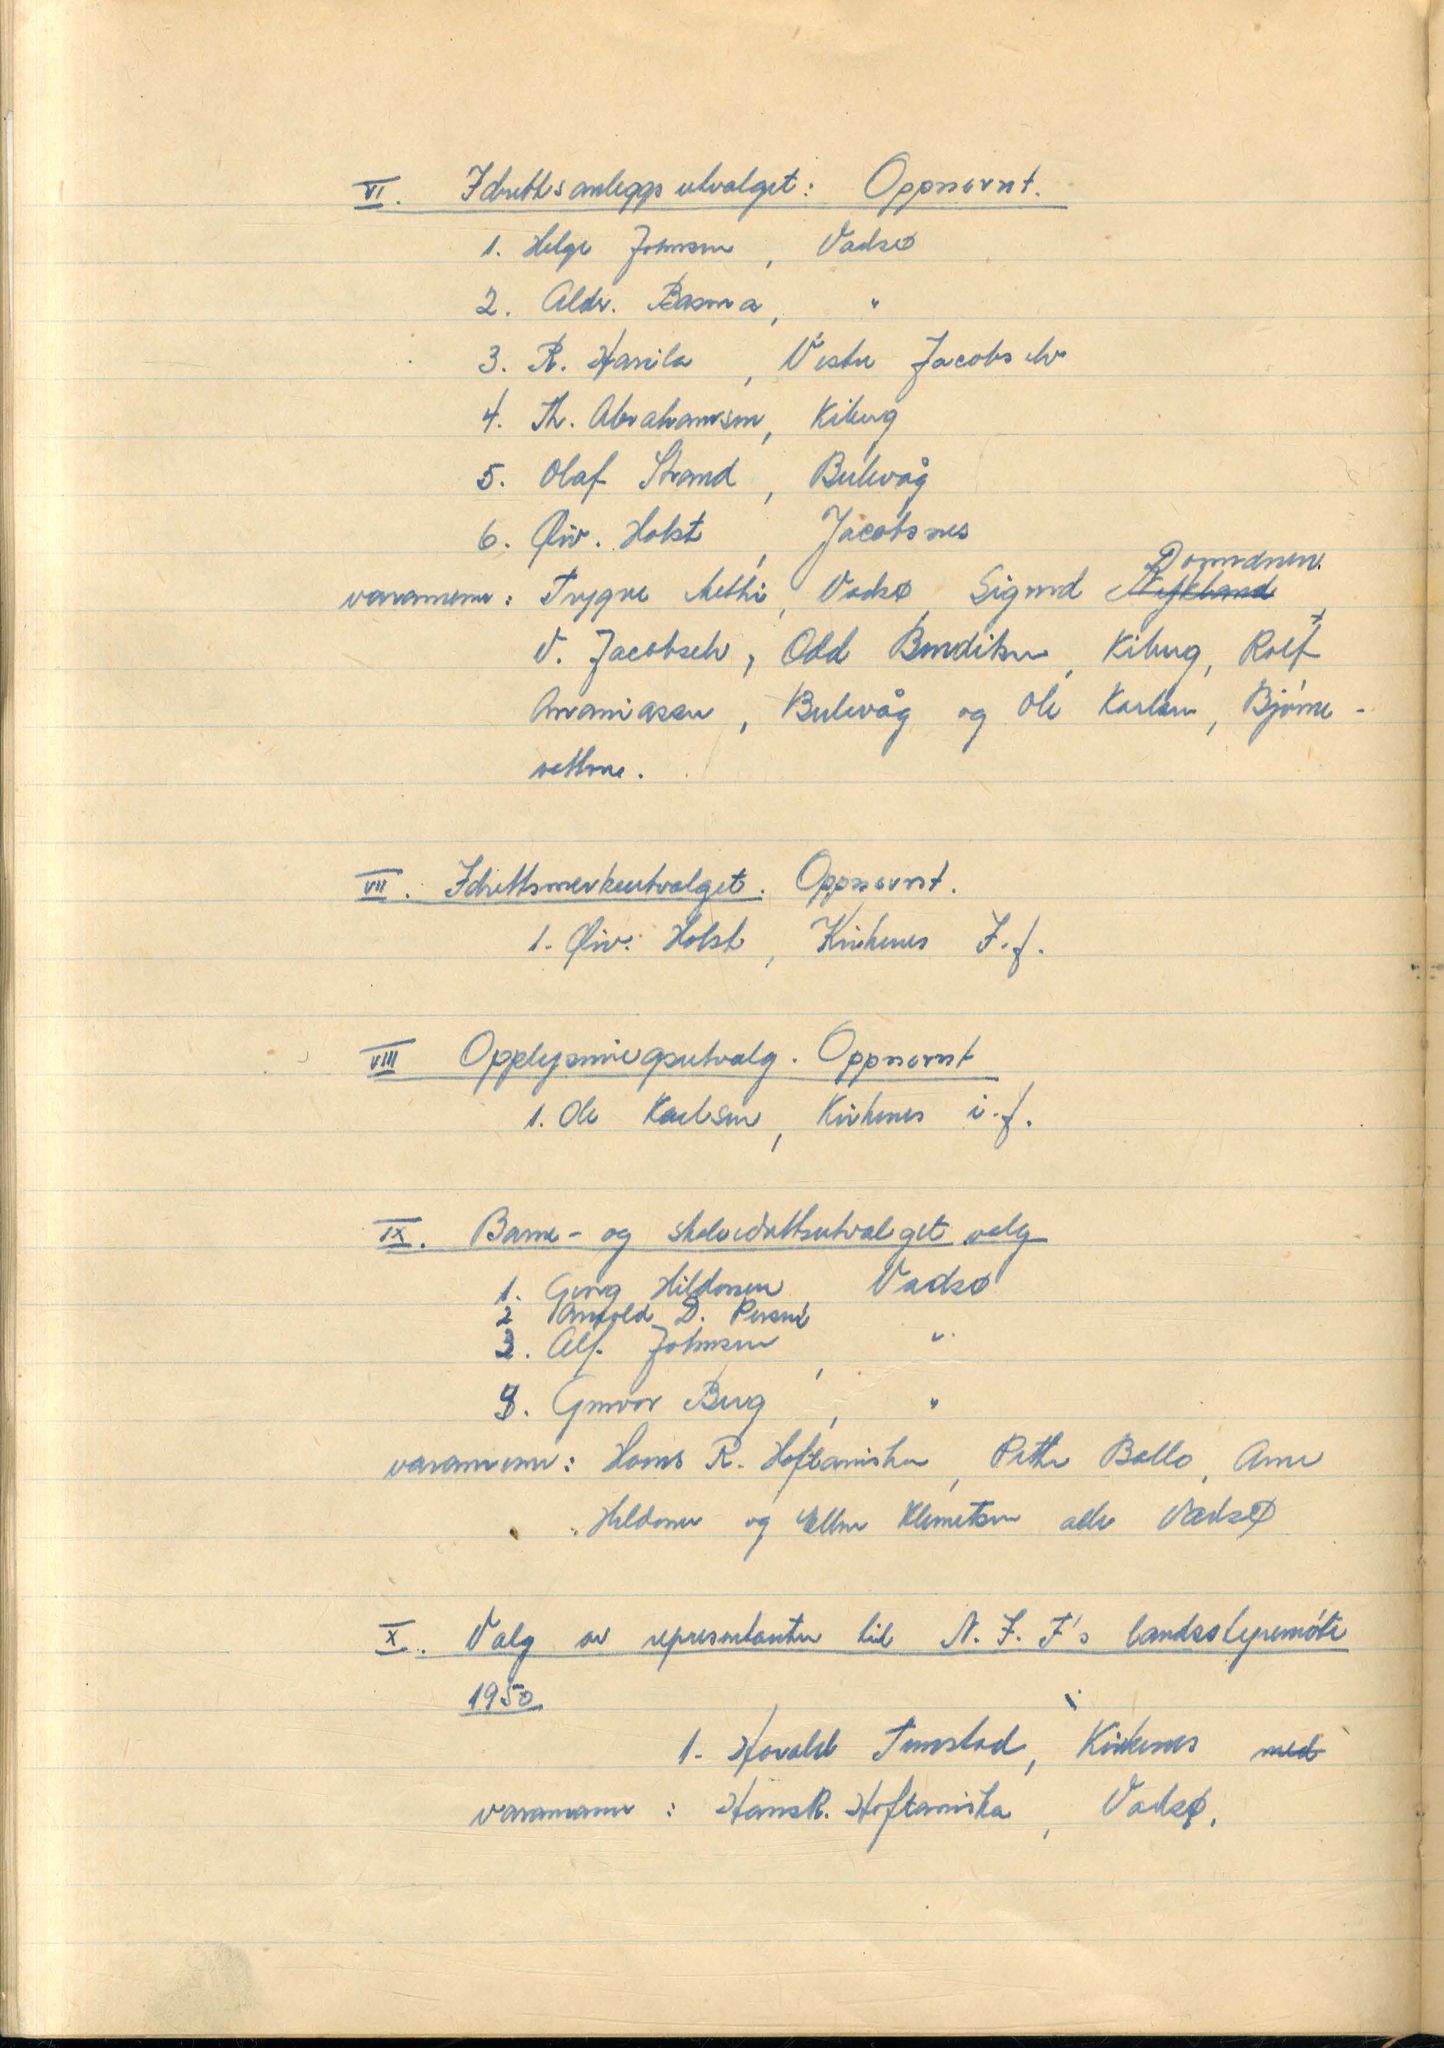 VI. Idrettsanleggsutvalget: Oppnevnt.
1. Helge Johnsen, Vadsø
2. Aldr. Basma, "
3. R. Hanila, Vestre Jacobselv
4. Th. Abrahamsen, Kiberg
5. Olaf Strand, Bulevåg
6. Øiv. Holst, Jacobsnes
varamenn: Trygve Methi, Vadsø, Sigurd
V. Jacobselv, Odd Bendiksen, Kiberg, Rolf
Ananiassen, Bulevåg og Ole Karlsen, Bjørne-
vettne.
VII. Idrettsmerkeutvalget. Oppnevnt.
1. Øiv. Holst, Kirkenes I.f.
VIII Opplysningsutvalg. Oppnevnt
1. Ole Karlsen, Kirkenes i.f.
IX. Barne- og skoleidrettsutvalget valg
1. Georg Hildonen Vadsø
2 Arnold D. Persen
3. Alf. Johnsen, "
Gunvor Berg, "
varamenn: Hans R. Hoftaniska, Petter Ballo, Arne
Hildonen og Ellen Klemetsen alle Vadsø
X. Valg av representanter til N.I.F's landsstyremöte
1950
1. Harald Tunstad, Kirkenes med
varamann: Hans R. Hoftaniska, Vadsø.